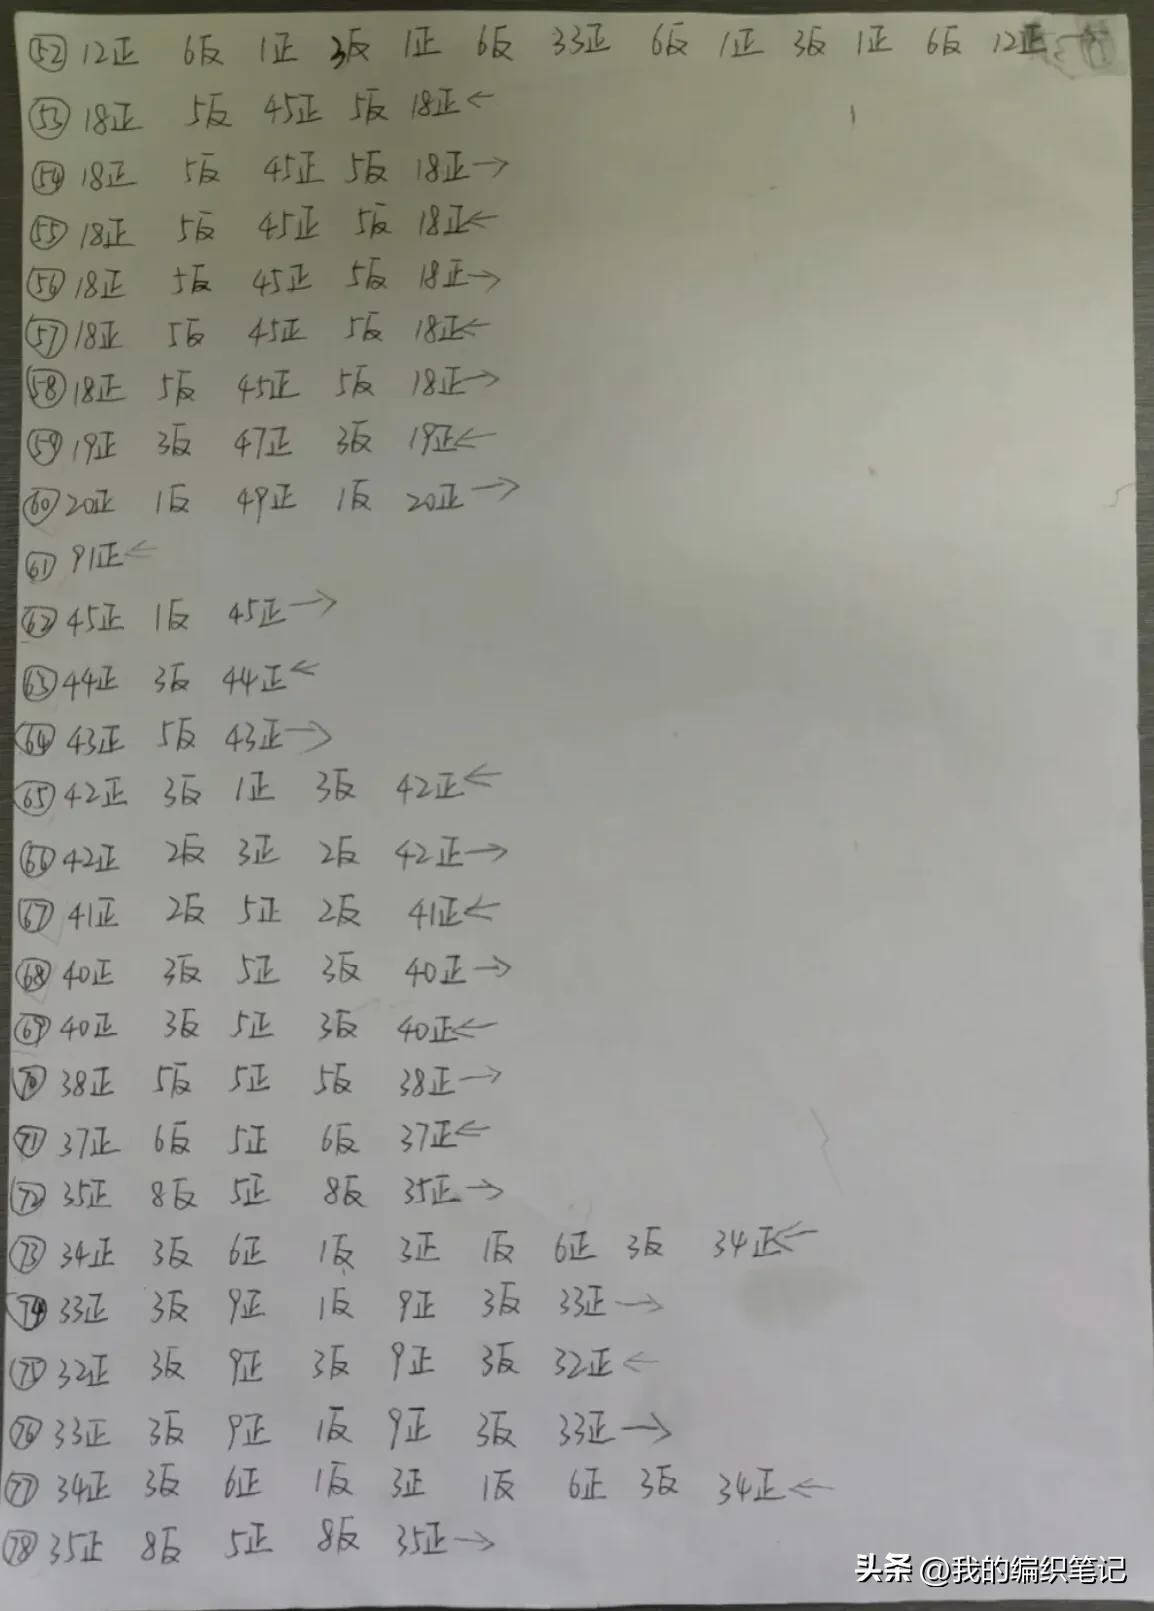 52 12正 6反 1正 3反 1正 6反 33正 6反 1正 3反 1正 6反 12正 →
53 18正 5反 45正 5反 18正 ←
54 18正 5反 45正 5反 18正 →
55 18正 5反 45正 5反 18正 ←
56 18正 5反 45正 5反 18正 →
57 18正 5反 45正 5反 18正 ←
58 18正 5反 45正 5反 18正 →
59 19正 3反 47正 3反 19正 ←
60 20正 1反 49正 1反 20正 →
61 91正 ←
62 45正 1反 45正 →
63 44正 3反 44正 ←
64 43正 5反 43正 →
65 42正 3反 1正 3反 42正 ←
66 42正 2反 3正 2反 42正 →
67 41正 2反 5正 2反 41正 ←
68 40正 3反 5正 3反 40正 →
69 40正 3反 5正 3反 40正 ←
70 38正 5反 5正 5反 38正 →
71 37正 6反 5正 6反 37正 ←
72 35正 8反 5正 8反 35正 →
73 34正 3反 6正 1反 3正 1反 6正 3反 34正 ←
74 33正 3反 9正 1反 9正 3反 33正 →
75 32正 3反 9正 3反 9正 3反 32正 ←
76 33正 3反 9正 1反 9正 3反 33正 →
77 34正 3反 6正 1反 3正 1反 6正 3反 34正 ←
78 35正 8反 5正 8反 35正 →
头条 @我的编织笔记